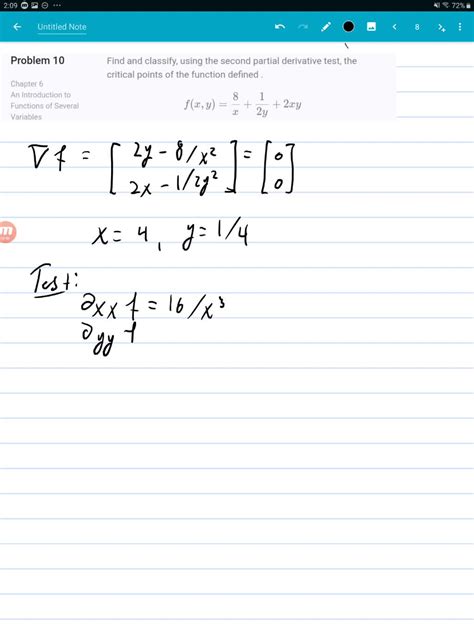 2:09 72%
Untitled Note 8
Problem 10
Chapter 6
An Introduction to
Functions of Several
Variables
Find and classify, using the second partial derivative test, the
critical points of the function defined .
f(x, y) = 8/x + 1/2y + 2xy
∇f = [2y - 8/x² 2x - 1/2y²] = [0 0]
x = 4, y = 1/4
Test:
∂xx f = 16/x³
∂yy f